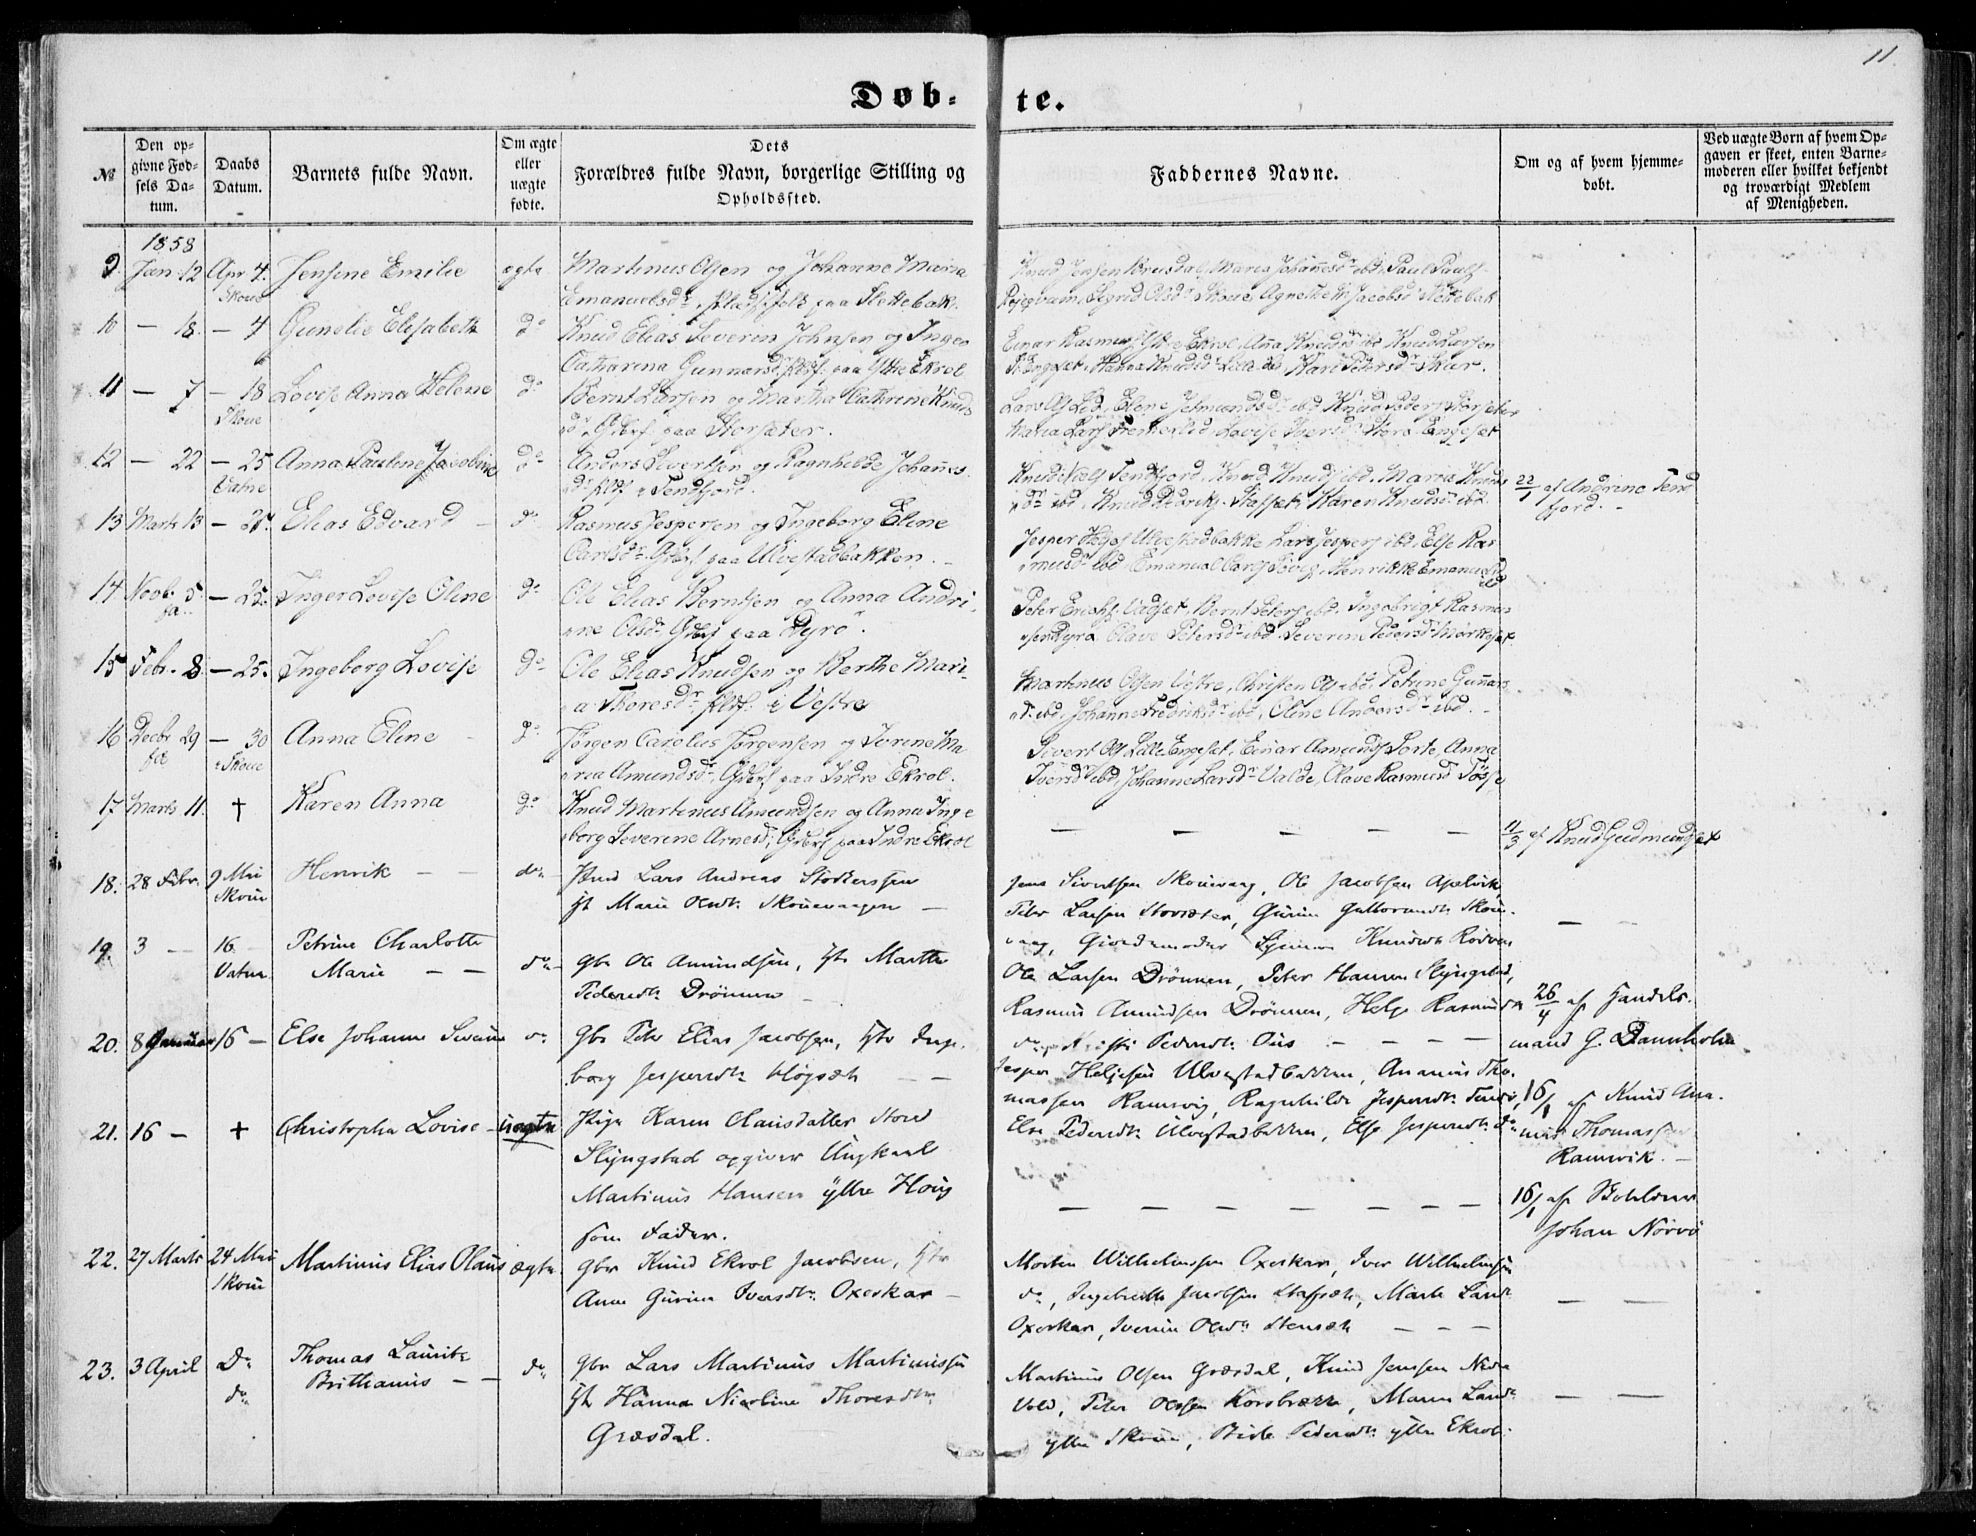 11.
Døb-
te.
№
Den op-
givne Fød-
sels Da-
tum.
Daabs
Datum.
Barnets fulde Navn.
Om ægte
eller
uægte
fødte.
Dets
Forældres fulde Navn, borgerlige Stilling og
Opholdssted.
Faddernes Navne.
Om og af hvem hjemme-
døbt.
Ved uægte Børn af hvem Op-
gaven er skeet, enten Barne-
moderen eller hvilket bekjendt
og troværdigt Medlem
af Menigheden.
1858
9. Jan. 12 Apr 4. Jensine Emilie ægte Martinus Olsen og Johanne Maria
Skoue Emanuelsdr. pladsfolk paa Slettebak.
Knud Jensen Brusdal, Maria Johannesdr ibd. Paul Pauls.
Sigrid Olsdr Skoue, Agnethe Jacobsd Slettebak
10 — 18. — 4 Gunelie Elisabeth do Knud Elias Severin Johnsen og Inger
Catharina Gunnarsdr. paa Yttre Ekrol
Einar Rasmus Yttre Ekrol, Anna Knudsdr ibd Knud Larsen
Engeset, Hanna Knudsdr Lille ibd, Kari Petersdr Skar.
11 — 7 — 18 Lovise Anna Helene do Bernt Larsen og Martha Cathrine Knuds
Skoue dr. Gbrf. paa Storsæter.
Lars Ols Lid, Elene Jetmundsdr ibd Knud Peders Storsæter
Maria Lars Fremerlid Lovise Iversdr Store Engeset
12 — 22 — 25 Anna Pauline Jacobine do Anders Sivertsen og Ragnhilde Johannes
Vatne dr. plf. Tendfjord.
Knud Niels Tendfjord, Knud Knuds ibd. Maria Knuds
dr ibd, Knud Staffset Karen Knudsdr ibd.
22/1 af Andrine Tend
fjord.
13 Marts 13 — 25. Elias Edvard — do Rasmus Jespersen og Ingeborg Eline
Carlsdr. Gbrf paa Ulvestadbakken.
Jesper Helges Ulvestadbakke Lars Jespers ibd, Else Ras
musdr ibd, Emanuel Henrikke Emanuelsd
ibd
14 Novb. 5 — 25. Inger Lovise Oline do Ole Elias Berntsen og Anna Andri
ne Olsdr. Gbrf paa Dyrø.
Peter Erichs. Vadset, Bernt Peters ibd. Ingebrigt Rasmus
sen Dyrø. Olave Petersdr ibd. Severine Pedersdr Mørkeset
15 Febr. 8. — 25. Ingeborg Lovise do Ole Elias Knudsen og Berthe Mari-
a Thoresdr. plf. i Vestre
Martinus Olsen Vestre, Christen Ols ibd, Petrine Gunnars
dr. ibd. Johanne Fredriksdr ibd, Oline Andersdr ibd.
16 Decbr 29 — 30 Anna Eline — do Jørgen Carolus Jørgensen og Serine Ma
Skoue ria Amundsdr, Gbrf paa Indre Ekrol.
Sivert Ols Lille Engeset, Einar Amunds Lorte, Anna
Iversdr ibd, Johanne Larsdr Valde, Olave Rasmusd Tøsse
17 Marts 11. † Karen Anna do Knud Martinus Amundsen og Anna Inge
borg Severine Arnesd; Gbrf paa Indre Ekrol
— — — — —
11/3 af Knud Gudmundset
18. 28 Febr. 9 Mai Henrik — — do Lars Andreas
Skoue Marie Olsdtr. Skouevaagen —
Jens Sivertsen Skouevaag, Ole Jacobsen Apelvik,
Peter Larsen Storsæter, Gurine Guttormsdtr Skou-
vaag, Gjordemoder Knudsdtr Rødven
— —
19. 3 — 16. Petrine Charlotte
Vatne Marie — — do Gbr Ole Amundsen, Martha
Pedersdtr. Drønnen —
Ole Larsen Drønnen, Peter Hansen Slyngstad,
Rasmus Amundsen Drønnen, Helge Rasmusdtr
do Pedersdtr. — — —
26/4 af Handels-
mand G. Dannholm
20. 8 Januar 16 — Else Johanne Severine do Gbr Peter Elias Jacobsen, Inge-
borg Jespersdtr. — —
Jesper Helgesen Ulvestadbakken, Ananias Tho-
massen Ramsvig, Ragnhilde Jespersdtr.
Else Pedersdtr. Ulvestadbakken, Else Jespersdtr. do
16/1 af Knud Ana-
nias Thomassen
Ramsvik. —
21. 16 — † Christopha Lovise — uægte Pige Karen Clausdatter Store
Slyngstad opgiver Ungkarl
Martinus Hansen yttre Houg
som Fader.
— — — — — — —
16/1 af
Johan Nørvø
22. 27 Marts 24 Mai Martinus Elias Olaus ægte Gbr Knud Ekrol Jacobsen,
Skoue Anne Gurine Iversdtr. Oxeskar —
Morten Wilhelmsen Oxeskar, Iver Wilhelmsen
do, Ingebrikt Jacobsen Staffseth, Marte Larsdtr
Oxeskar, Iverine Olsdtr Stenseth — — —
— —
23. 3 April do Thomas Lauritz
do Brithanius — — do Gbr Lars Martinus Martinussen
Hanna Nicoline Thoresdtr
Græsdal.
Martinus Olsen Græsdal, Knud Jenssen Nedre
Vold, Peter Olssen Korsbrække, Maren Larsdtr
yttre Skoue, Pedersdtr yttre Ekrol.
— —